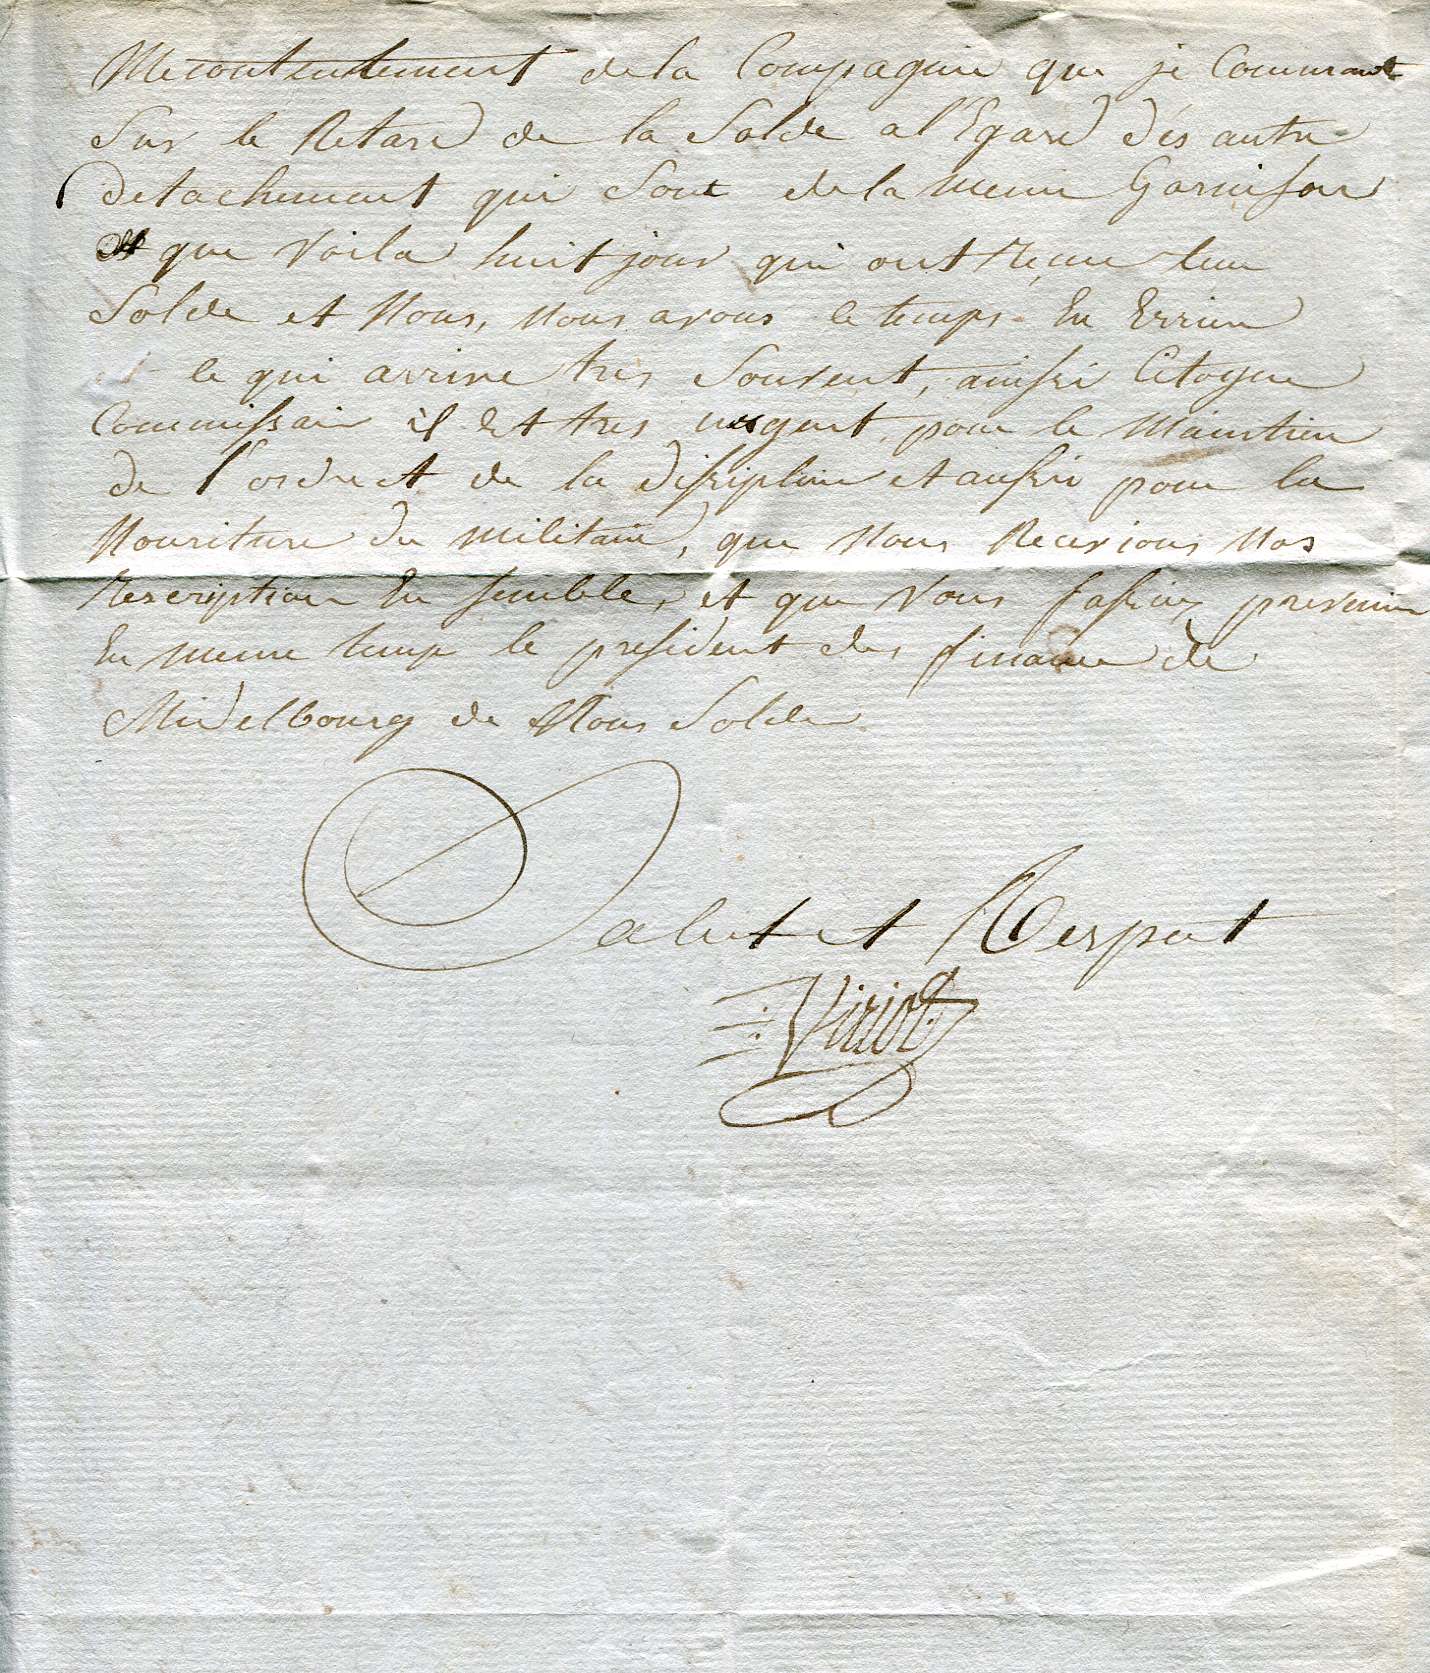 Mecontentement de la Compagnie que je Commant
Sur le Retard de la Solde a l'Egard dés autre
detachement qui Sont de la meme Garnison
et que Voila huit jour qui ont Recue leur
Solde et Nous, nous avons le temps En Erriere
ce qui arrive tres Souvent, ainssi Citoyen
Commissair il Est tres urgent, pour le Maintien
de l'ordre et de la dissipline et aussi pour la
Nouriture du Militaire, que Nous Recevions Nos
Rescription En semble, et que Vous fassiez prevenir
En meme temp le president des finance de
Midelbourg de Nous Solder
Salut et Respect
Viriot